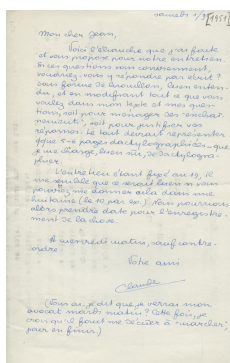 samedi 1/3 [1951]
Mon cher Jean,
Voici l'ébauche que j'ai faite
et vous propose pour notre entretien.
Si ces questions vous conviennent,
voudriez-vous y répondre par écrit ?
sous forme de brouillon, bien enten-
du, et en modifiant tout ce que vous
voulez dans mon texte et mes ques-
tions, soit pour ménager des "enchaî-
nements", soit pour justifier vos
réponses. Le tout devrait représenter
5-6 pages dactylographiées - que
je me charge, bien sûr, de dactylogra-
phier.
L'entretien étant fixé au 19, il
me semble que ce serait bien si vous
pouviez me donner cela dans une
huitaine (le 10 par ex.). Nous pourrions
alors prendre date pour l'enregistre-
ment de la chose.
A mercredi matin, sauf contre-
ordre.
Votre ami
Claude
(Vous ai-je dit que je verrai mon
avocat mardi matin ? Cette fois, je
crois qu'il faut me décider à "marcher",
pour en finir)